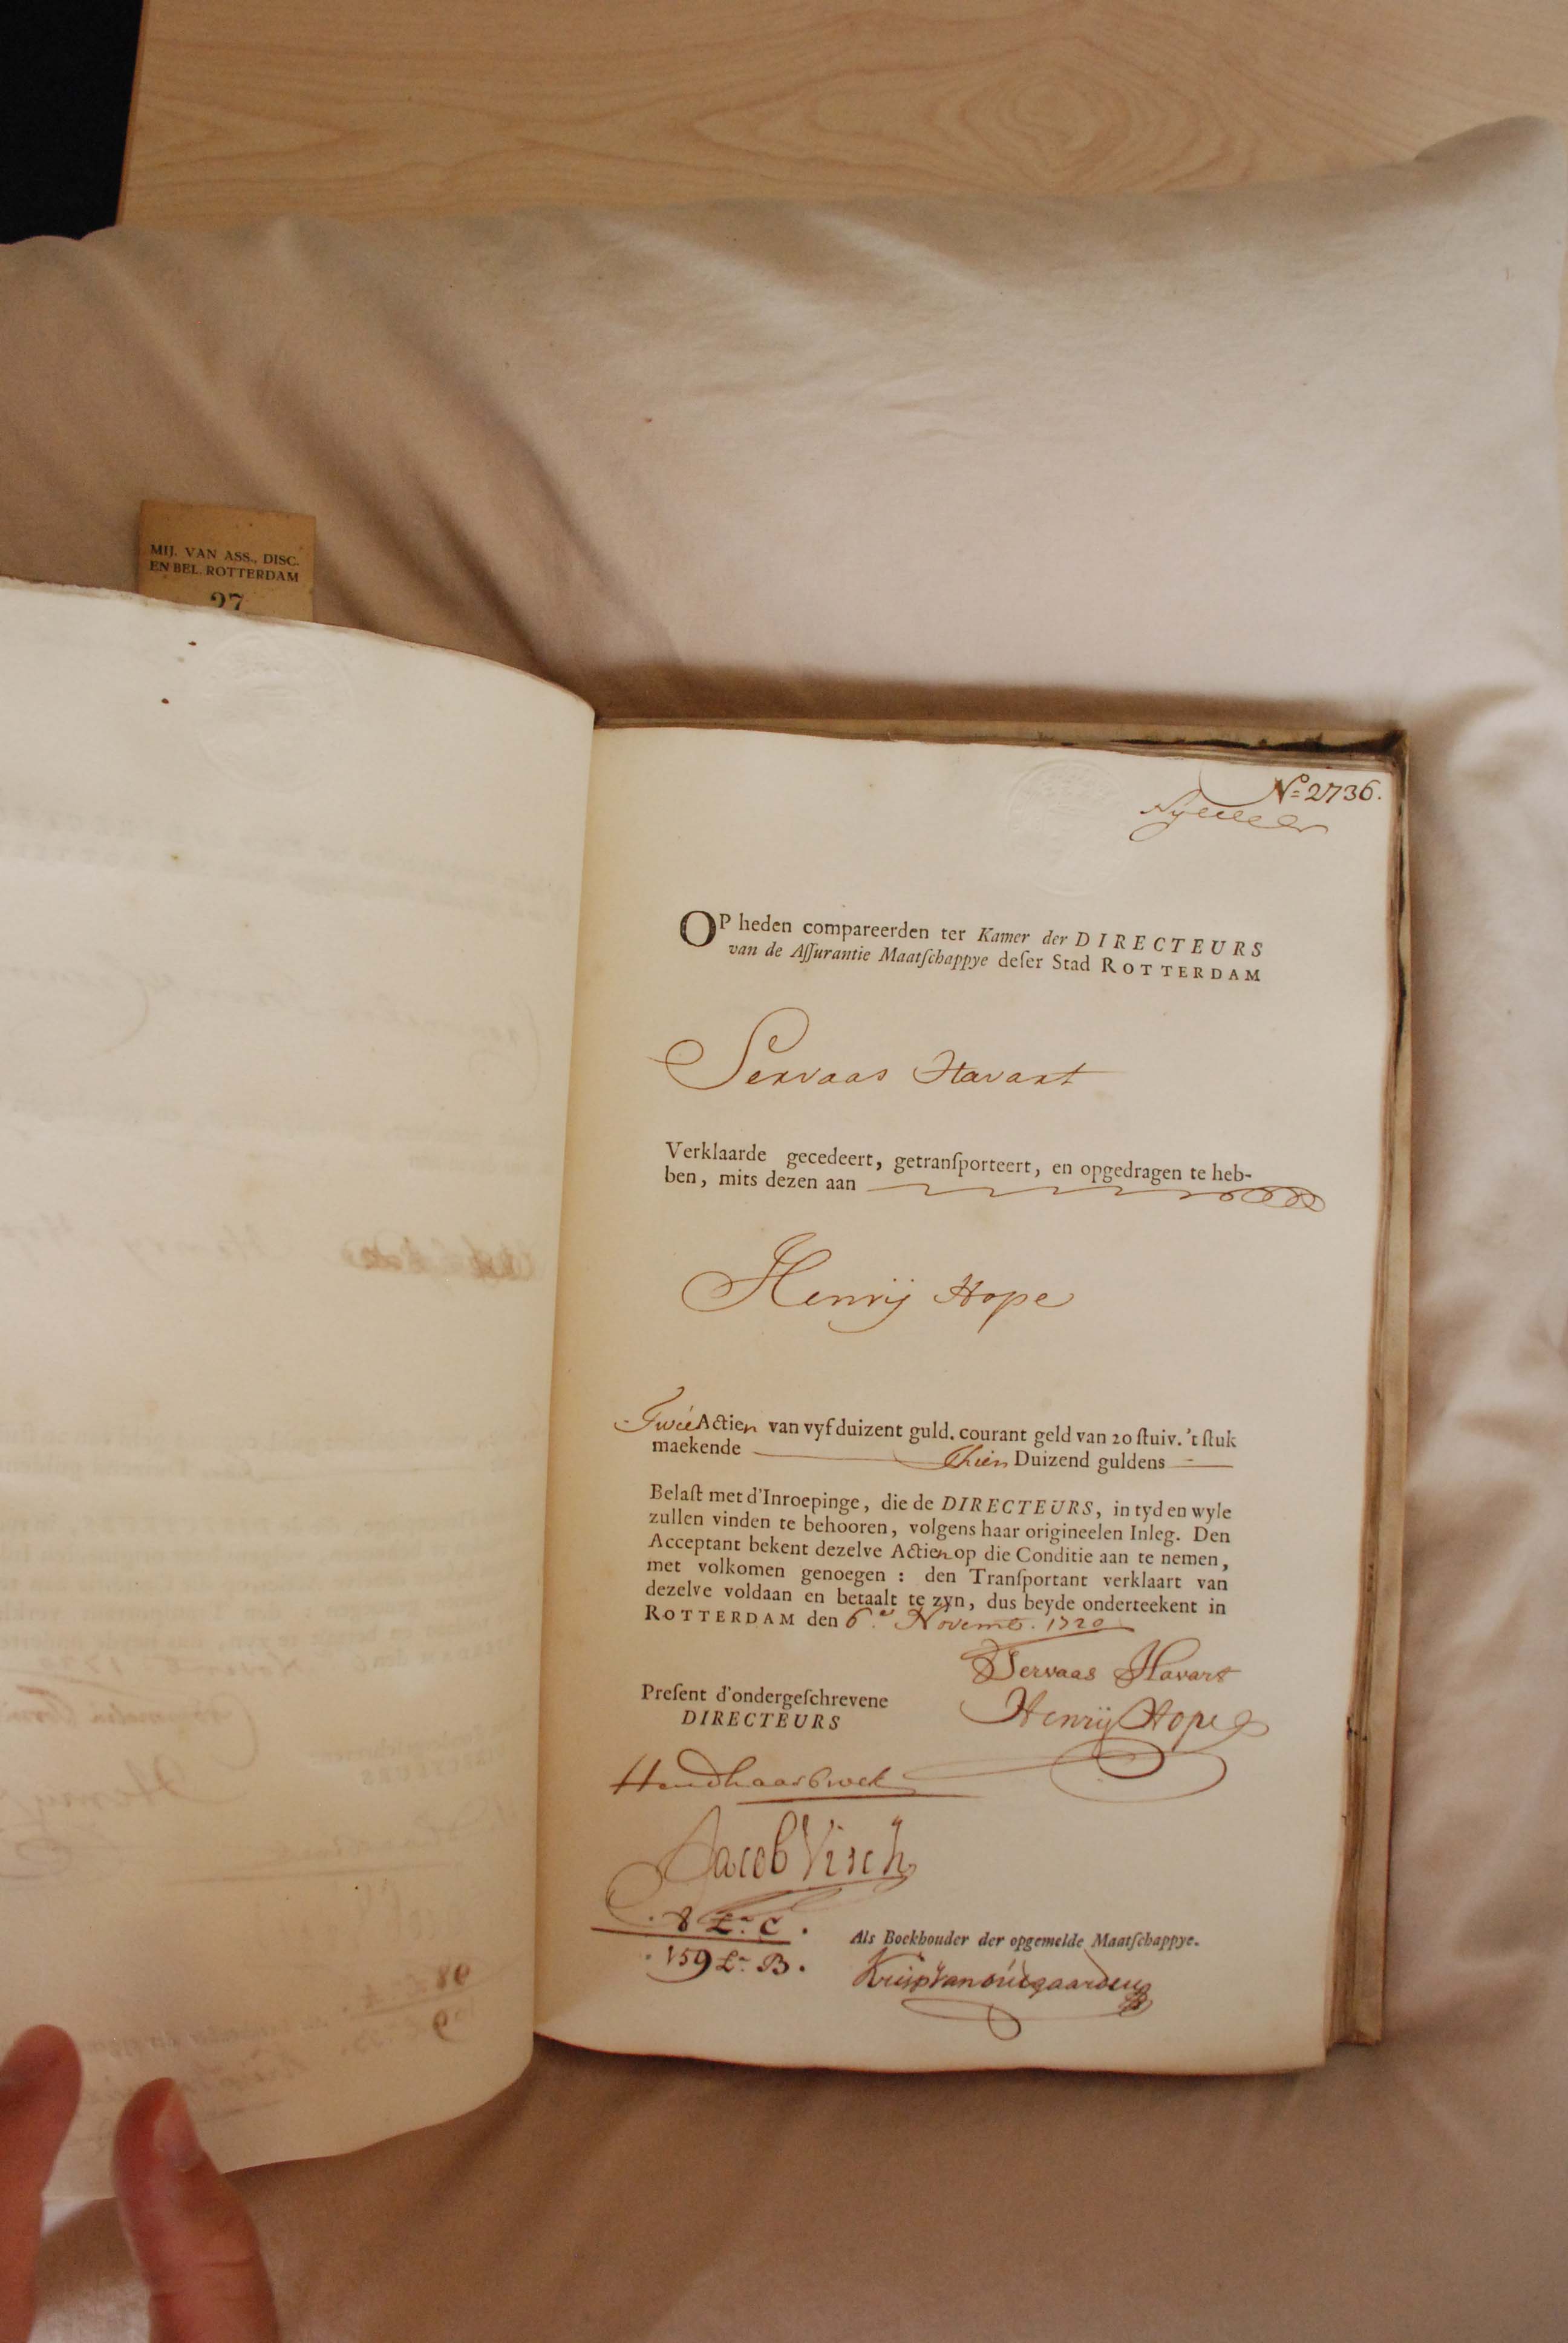 MIJ. VAN ASS., DISC.
EN BEL. ROTTERDAM
27
No 2736.
OP heden compareerden ter Kamer der DIRECTEURS
van de Aſſurantie Maatſchappye deſer Stad ROTTERDAM
Servaas Havart
Verklaarde gecedeert, getranſporteert, en opgedragen te heb-
ben, mits dezen aan
Henrij Hope
Twée Actien van vyf duizent guld. courant geld van 20 ſtuiv. 't ſtuk
maekende Thien Duizend guldens
Belaſt met d'Inroepinge, die de DIRECTEURS, in tyd en wyle
zullen vinden te behooren, volgens haar origineelen Inleg. Den
Acceptant bekent dezelve Actien op die Conditie aan te nemen,
met volkomen genoegen : den Tranſportant verklaart van
dezelve voldaan en betaalt te zyn, dus beyde onderteekent in
ROTTERDAM den 6.e Novemb. 1720
Servaas Havart
Preſent d'ondergeſchrevene
Henrij Hope
DIRECTEURS
Jacob Visch
8 Lr. C.
Als Boekhouder der opgemelde Maatſchappye.
159 Lr. B.